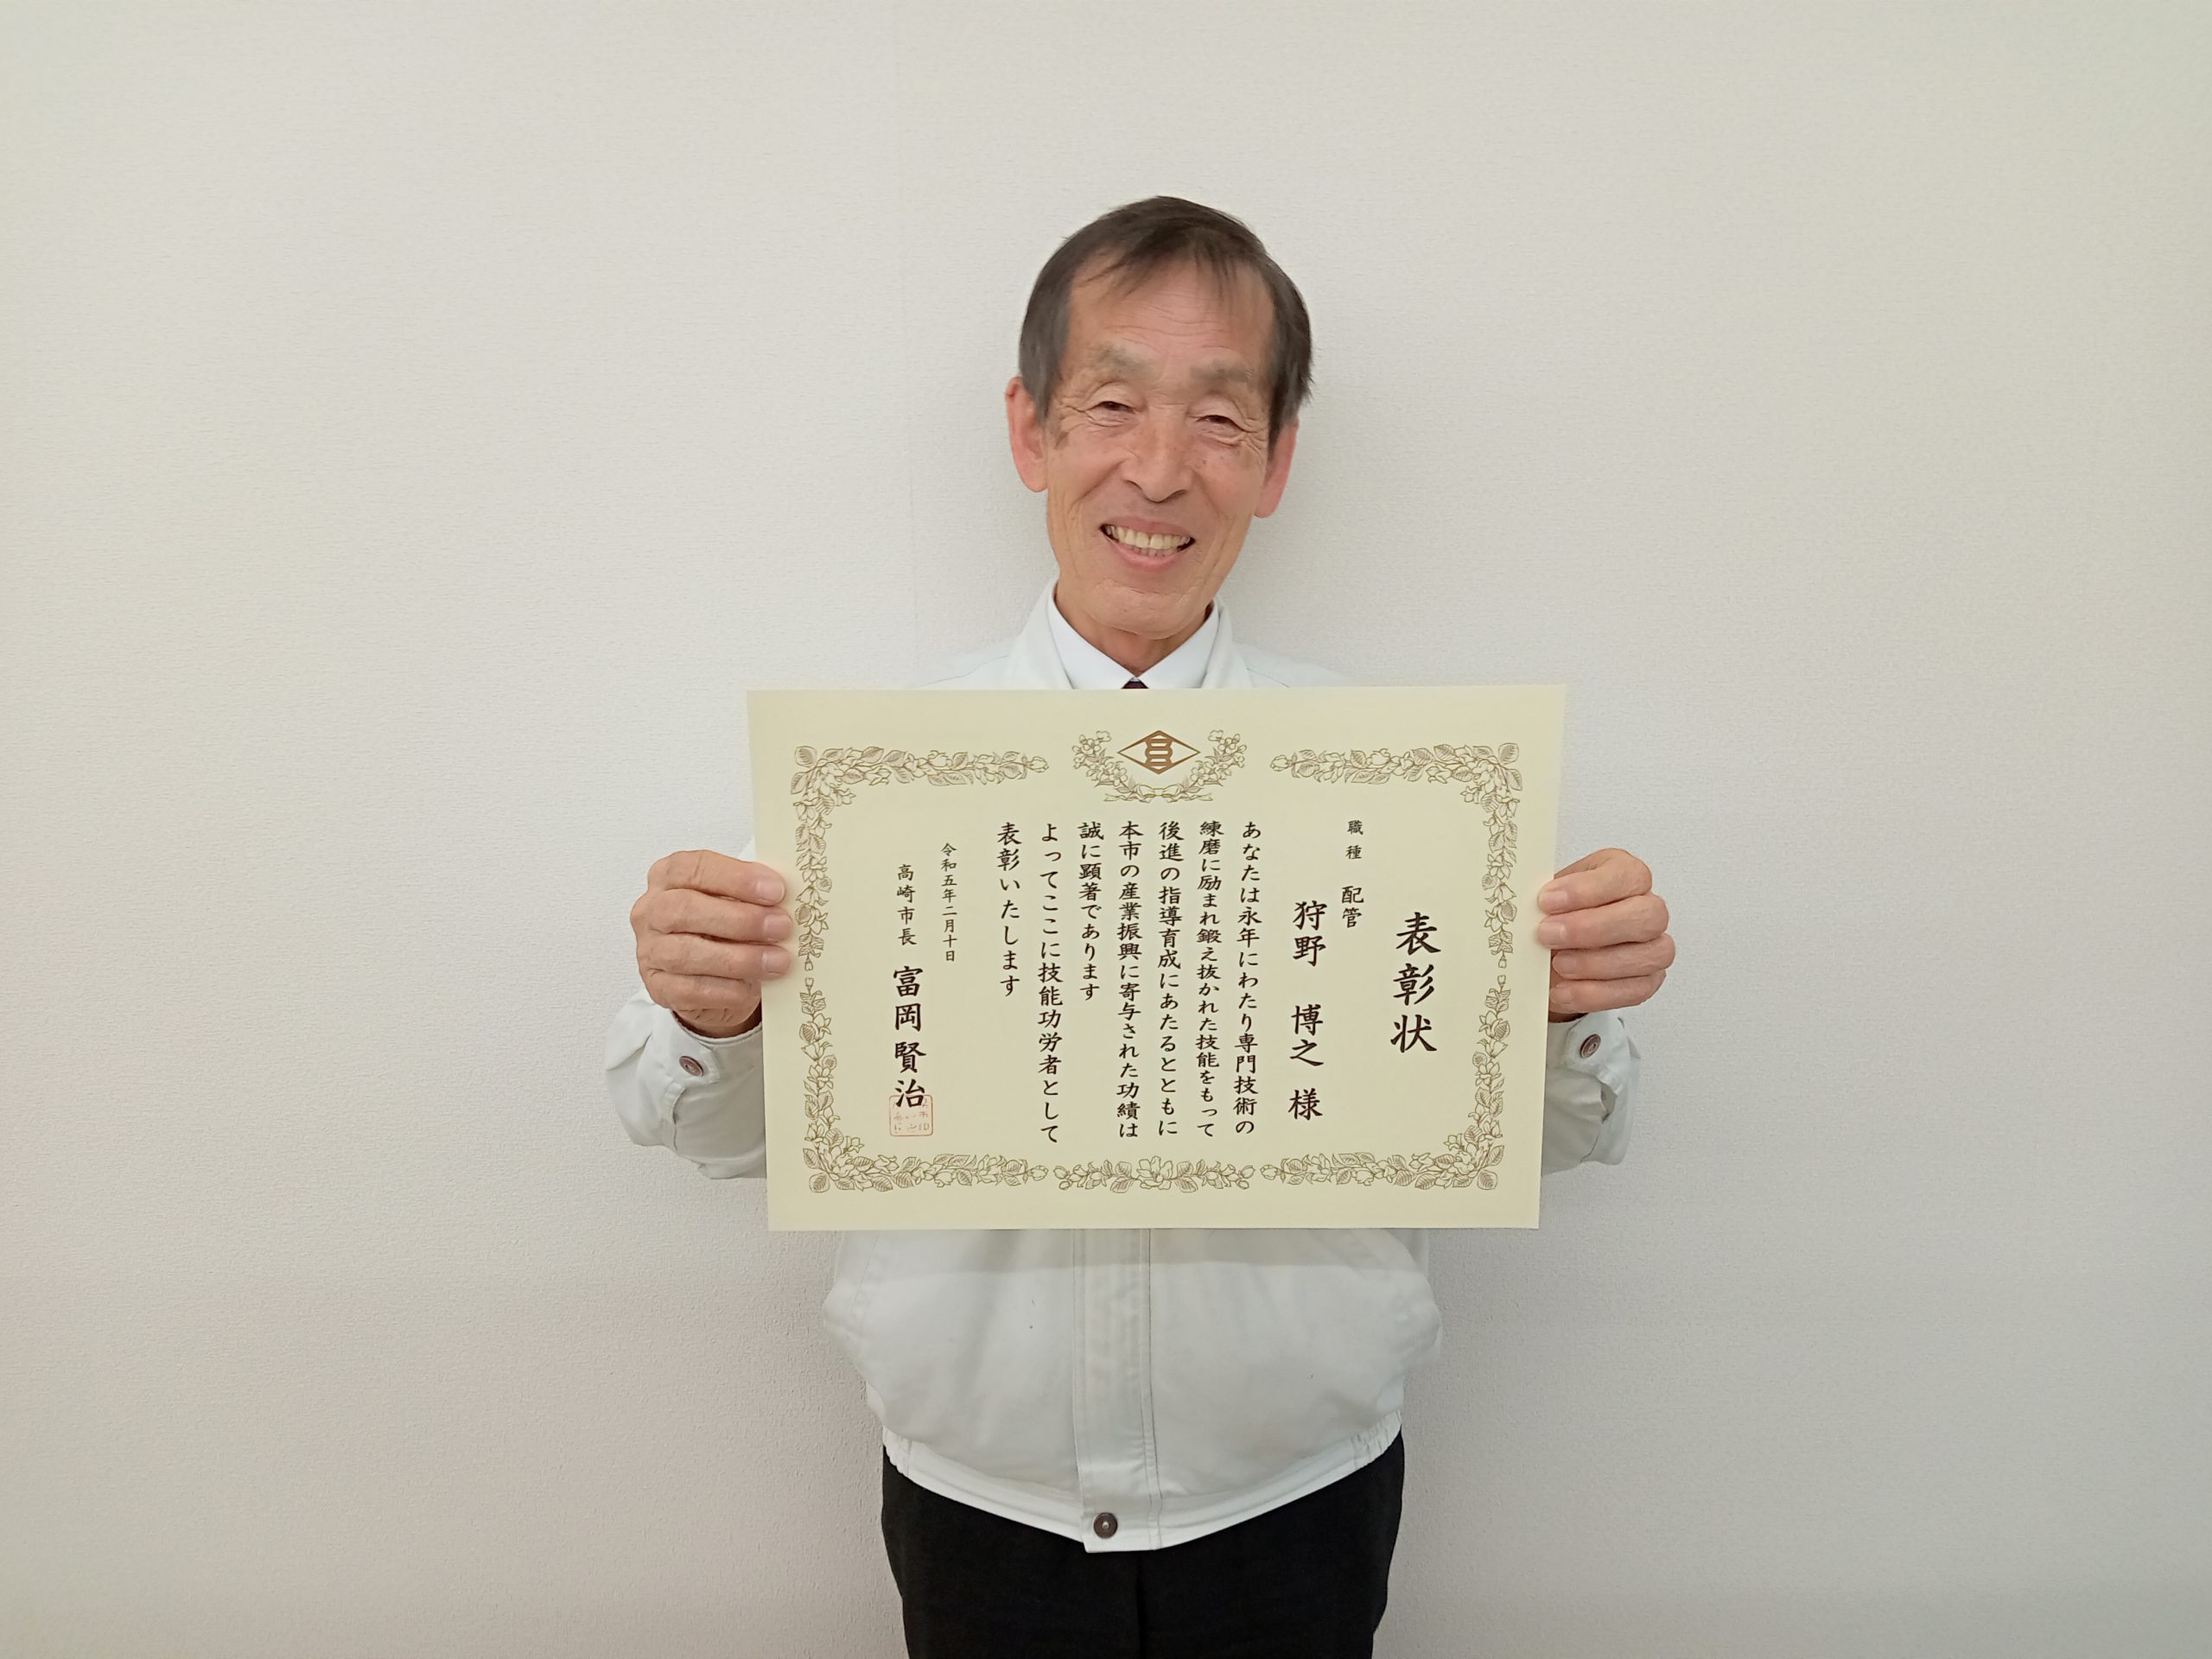 表彰状
職種 配管
狩野 博之 様
あなたは永年にわたり専門技術の
練磨に励まれ鍛え抜かれた技能をもって
後進の指導育成にあたるとともに
本市の産業振興に寄与された功績は
誠に顕著であります
よってここに技能功労者として
表彰いたします
令和五年二月十日
高崎市長 富岡賢治